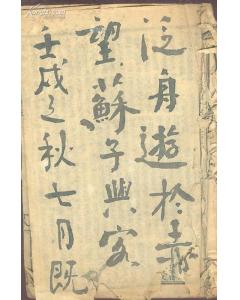 壬戌之秋七月既
望蘇子與客
泛舟遊於赤